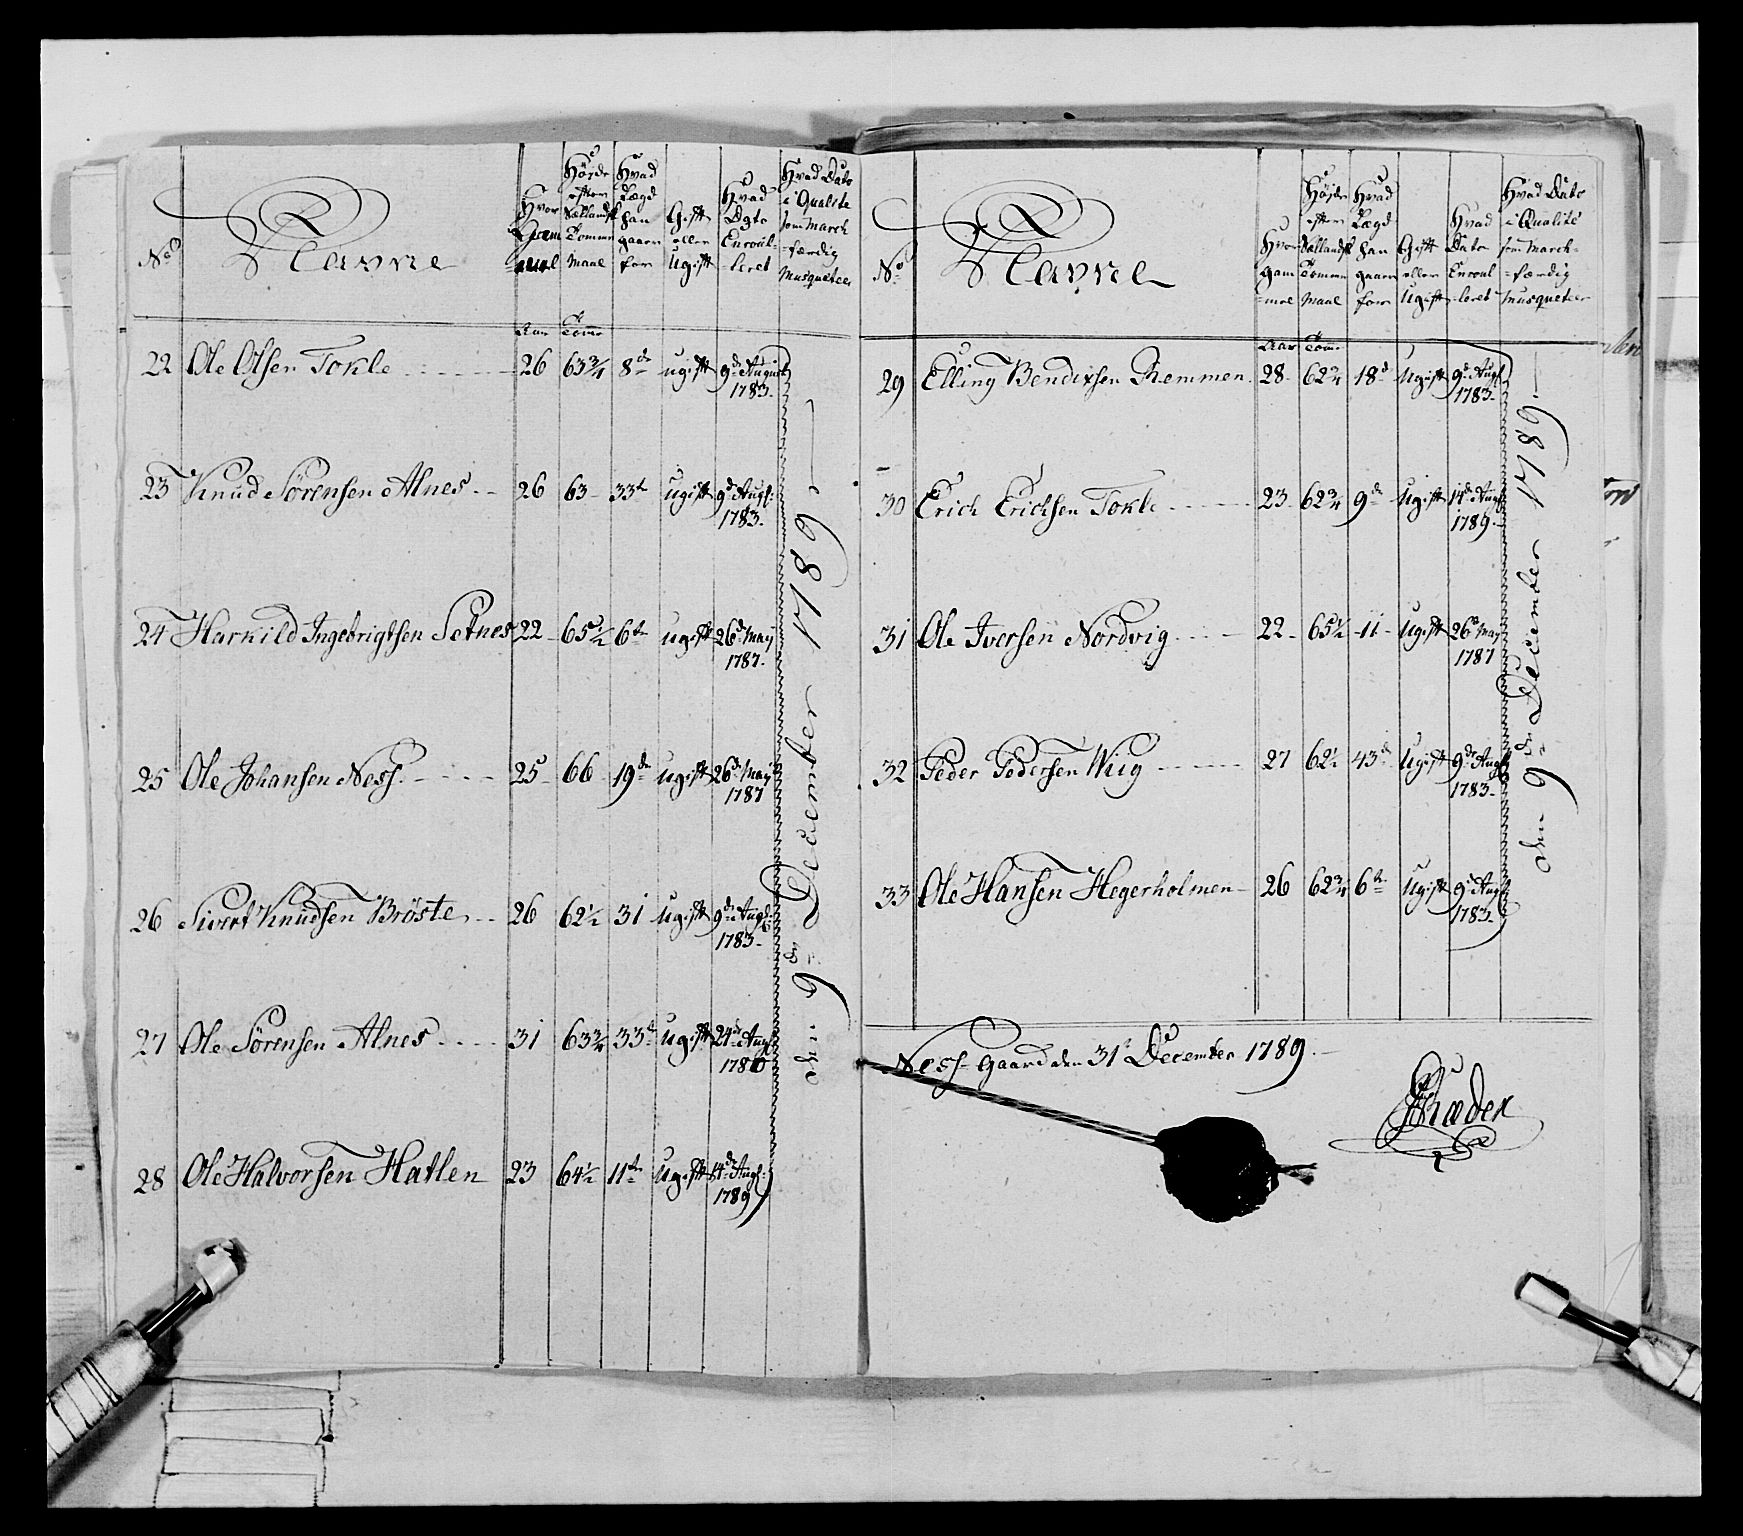 No
Navne
Hvor Gam mel
Høyde efter Siællandsk Tomme Maal
Hvad Lægd han gaaer for
Gift eller Ugift
Hvad Dato Enroul- leret
Hvad Dato i Qualite som March- færdig Musqueteer
Aar Tomr
22 Ole Olsen Tokle 26 63 3/4 8de ugift 9de August
1783.
23 Knud Sörensen Alnes 26 63 33te ugift 9de Augt:
1783.
24 Harkild Ingebrigtsen Setnes 22 65 1/2 6te ugift 26de May
1787.
25 Ole Johansen Ness. 25 66 19de ugift 26de May
1787
26 Sivert Knudsen Bröste 26 62 1/2 31 ugift 9de Augt:
1783.
27 Ole Sörensen Alnes 31 63 3/4 33te ugift 24de Augt
1786
28 Ole Halvorsen Hatlen 23 64 1/2 11te ugift 14de Augt:
1789
den 9de December 1789
No
Navne
Hvor Gam mel
Høyde efter Siællandsk Tomme Maal
Hvad Lægd han gaaer for
Gift eller Ugift
Hvad Dato Enroul- leret
Hvad Dato i Qualité som March- færdig Musqueteer
Aar Tomr
29 Elling Bendixsen Remmen 28 62 3/4 18de Ugift 9de Augt
1783.
30 Erich Erichsen Tokle 23 62 3/4 9de Ugift 14de Augt
1789.
31 Ole Iversen Nordvig 22 65 1/2 11 Ugift 26de May
1787
32 Peder Pedersen Wiig 27 62 1/2 43de Ugift 9de Augt
1783.
33 Ole Hansen Hegerholmen 26 62 3/4 6te Ugift 9de Augt
1783.
den 9de December 1789.
Ness Gaard den 31te December 1789.